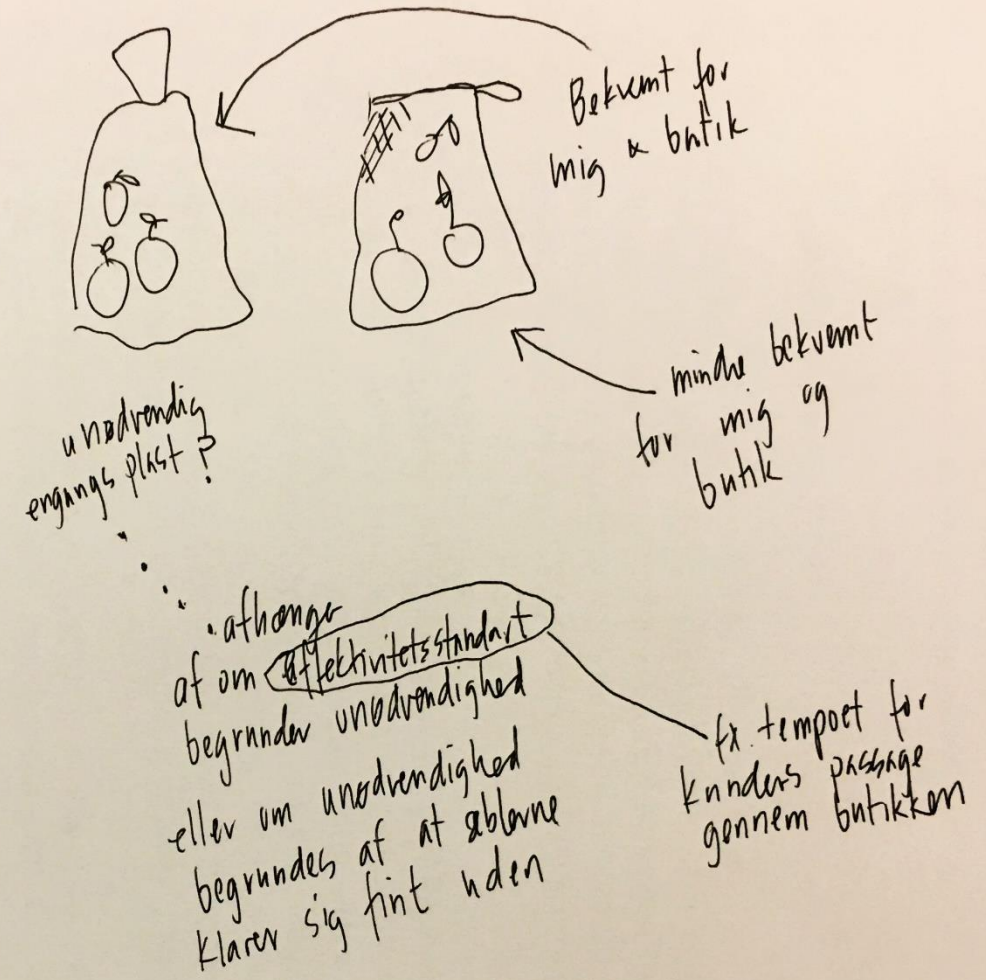 Bekvemt for
mig & butik
mindre bekvemt
for mig og
butik
unødvendig
engangs plast?
afhænger
af om effektivitetsstandart
begrunder unødvendighed
eller om unødvendighed
begrundes af at æblerne
klarer sig fint uden
fx. tempoet for
kunders passage
gennem butikken